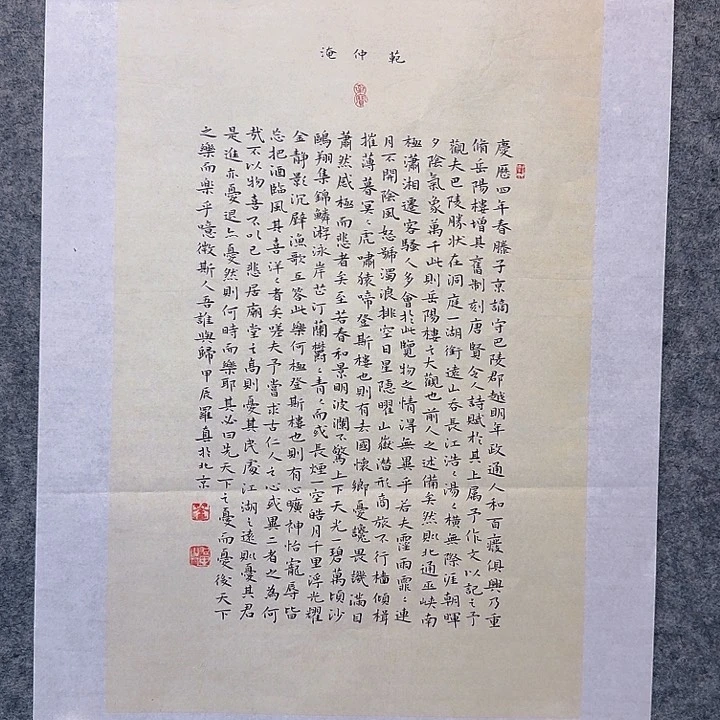 範仲淹
慶曆四年春滕子京謫守巴陵郡越明年政通人和百廢俱興乃重
脩岳陽樓增其舊制刻唐賢今人詩賦於其上屬予作文以記之予
觀夫巴陵勝狀在洞庭一湖銜遠山吞長江浩〻湯〻橫無際涯朝暉
夕陰氣象萬千此則岳陽樓之大觀也前人之述備矣然則北通巫峽南
極瀟湘遷客騷人多會於此覽物之情得無異乎若夫霪雨霏〻連
月不開陰風怒號濁浪排空日星隱曜山嶽潛形商旅不行檣傾楫
摧薄暮冥〻虎嘯猿啼登斯樓也則有去國懷鄉憂讒畏譏滿目
蕭然感極而悲者矣至若春和景明波瀾不驚上下天光一碧萬頃沙
鷗翔集錦鱗游泳岸芷汀蘭鬱〻青〻而或長煙一空皓月千里浮光耀
金靜影沉璧漁歌互答此樂何極登斯樓也則有心曠神怡寵辱皆
忘把酒臨風其喜洋〻者矣嗟夫予嘗求古仁人之心或異二者之為何
哉不以物喜不以己悲居廟堂之高則憂其民處江湖之遠則憂其君
是進亦憂退亦憂然則何時而樂耶其必曰先天下之憂而憂後天下
之樂而樂乎噫微斯人吾誰與歸甲辰羅真於北京